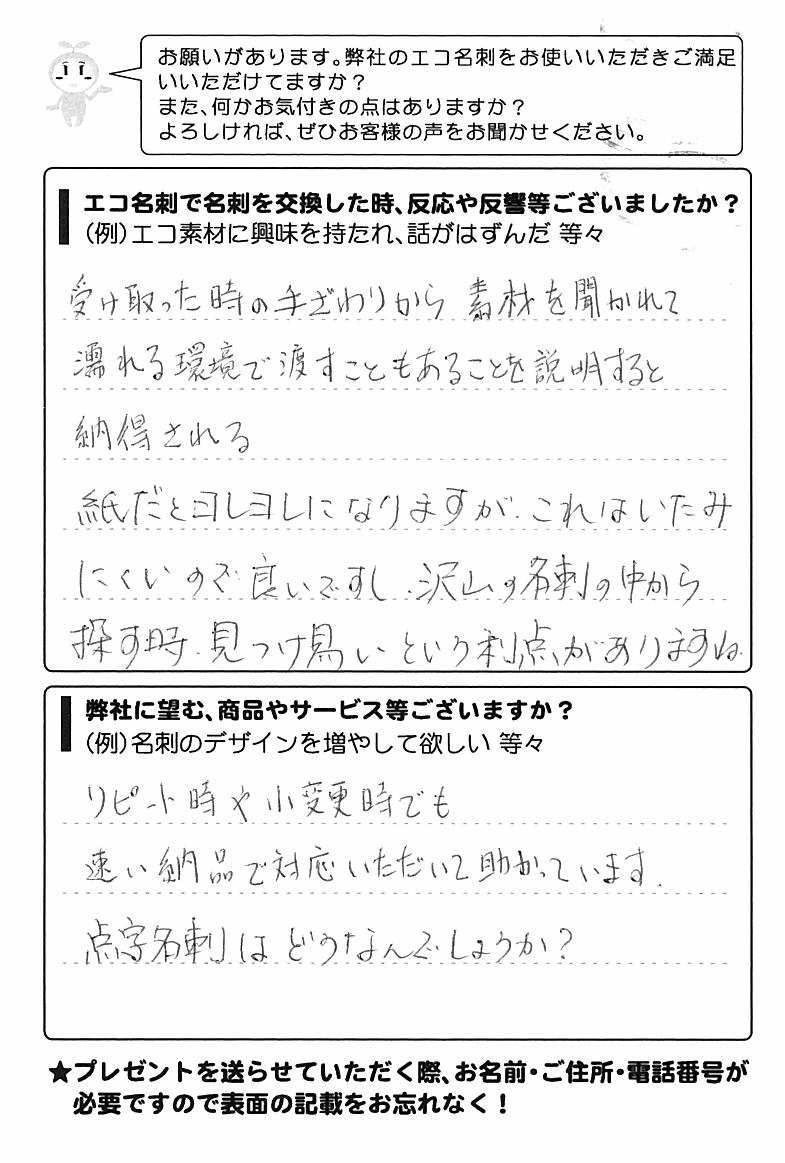 お願いがあります。弊社のエコ名刺をお使いいただきご満足
いいただけてますか？
また、何かお気付きの点はありますか？
よろしければ、ぜひお客様の声をお聞かせください。
エコ名刺で名刺を交換した時、反応や反響等ございましたか？
（例）エコ素材に興味を持たれ、話がはずんだ 等々
受け取った時の手ざわりから 素材を聞かれて
濡れる環境で渡すこともあることを説明すると
納得される
紙だとヨレヨレになりますが、これはいたみ
にくいので良いですし、沢山の名刺の中から
探す時、見つけ易いという利点がありますね。
弊社に望む、商品やサービス等ございますか？
（例）名刺のデザインを増やして欲しい 等々
リピート時や小変更時でも
速い納品で対応いただいて助かっています。
点字名刺はどうなんでしょうか？
★プレゼントを送らせていただく際、お名前・ご住所・電話番号が
必要ですので表面の記載をお忘れなく！